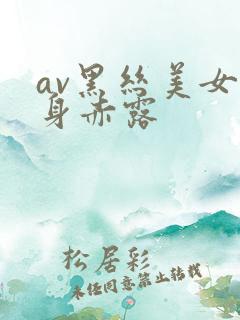 av黑丝美女
身赤露
松居彩
未经同意禁止转载